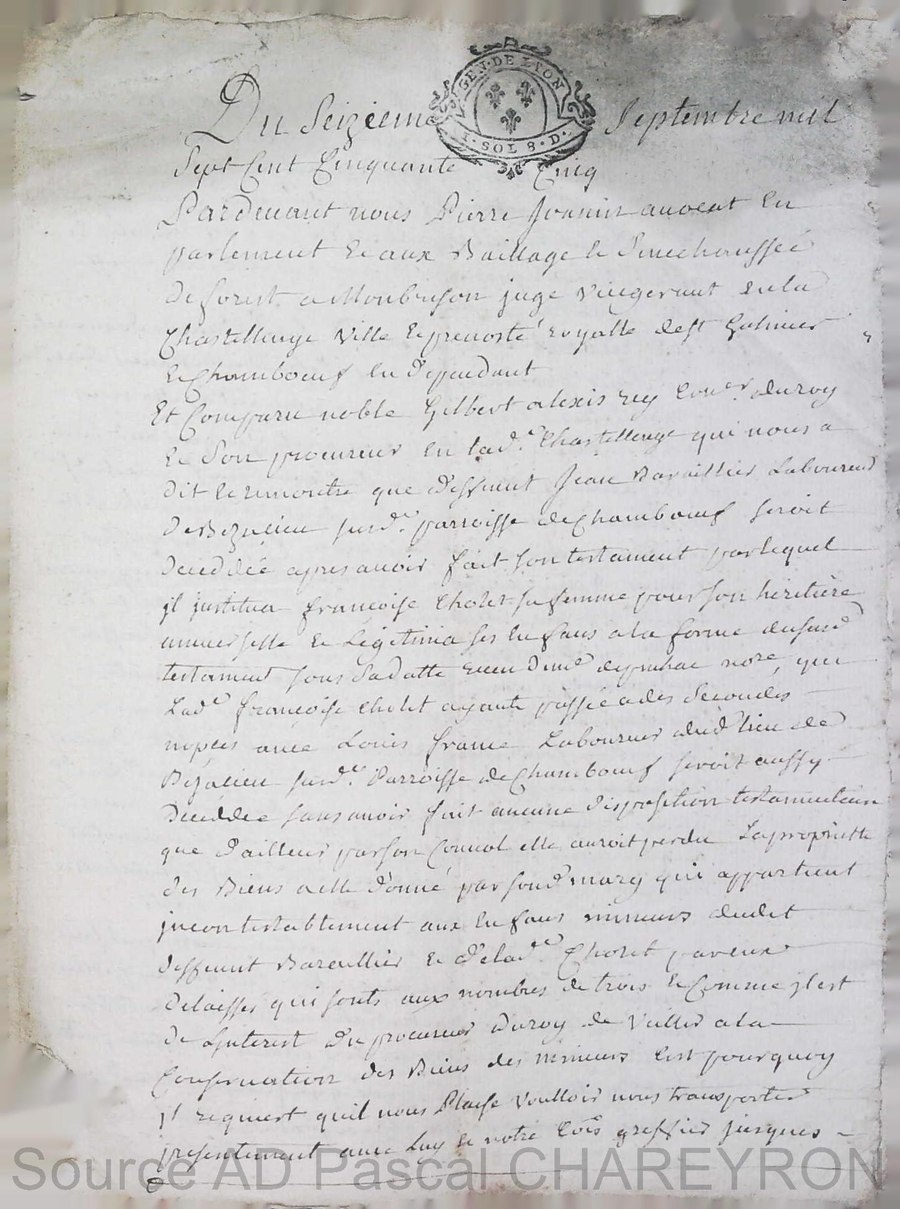 GEN. DE LYON
1. SOL 8. D.
Du Seizieme Septembre mil
Sept Cent Cinquante Cinq
Pardevant nous Pierre Jounin avocat En
parlement Et aux Baillage Et Senechaussée
de forest a Montbrison juge viegerant En la
Chastellenye Ville Et prevosté royalle de St Galmier
Et Chambœuf En Dependant
Et Comparu noble Gilbert alexis rey Coner. du roy
Et Son procureur En lade. Chastellenye qui nous a
dit Et remontre que deffunt Jean Baraillier Laboureur
de Bezalieu surde. parroisse de Chambœuf seroit
decedée apres avoir fait son testament par lequel
il justitua francoise Cholet sa femme pour son héritière
universelle Et Légitima ses Enfans a la forme de
testament sous Sa datte nore, que
Lade francoise Cholet ayante passée a des Secondes
nopces avec Louis france Laboureur dud lieu de
Bezalieu surde. Parroisse de Chambœuf seroit aussy
Decedée sans avoir fait aucune Disposition testamentaire
que d'ailleur par son Convol elle auroit perdu La propriette
des Biens a elle donné par son d mary qui appartient
jncontestablement aux Enfans mineurs dudit
deffunt Baraillier Et de lade Cholet
Delaissés qui sonts aux nombres de trois Et Comme jl est
de Lynterest du procureur du roy de Veiller a la
Conservation des Biens des mineurs C'est pourquoy
jl requiert quil nous Plaise Voulloir nous transporter
presentement avec Luy Et notre Cois greffier jusques
Source AD Pascal CHAREYRON